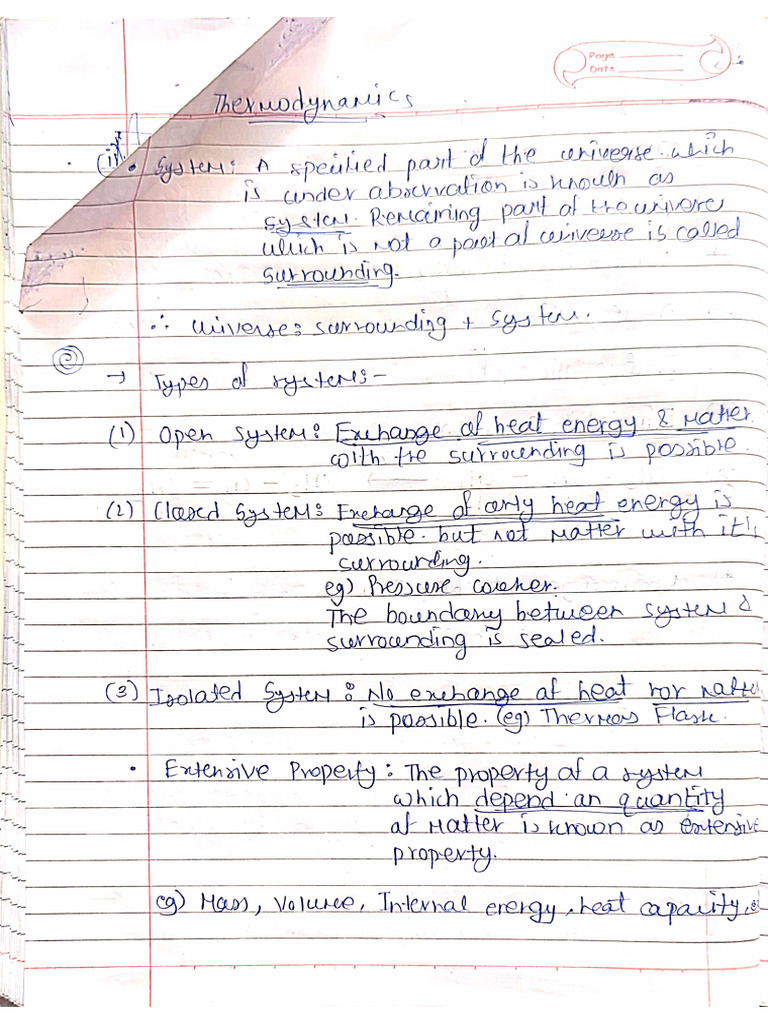 Page
Date
Thermodynamics
(i)
• System: A specified part of the universe which
is under observation is known as
system. Remaining part of the univers
which is not a part of universe is called
surrounding.
∴ Universe = surrounding + system.
②
→ Types of systems:-
(1) Open system: Exchange of heat energy & matter
with the surrounding is possible.
(2) Closed system: Exchange of only heat energy is
possible but not matter with it's
surrounding.
eg) Pressure cooker.
The boundary between system &
surrounding is sealed.
(3) Isolated system: No exchange of heat nor matter
is possible. (eg) Thermos Flask.
• Extensive Property: The property of a system
which depend on quantity
of matter is known as extensive
property.
eg) Mass, Volume, Internal energy, heat capacity,